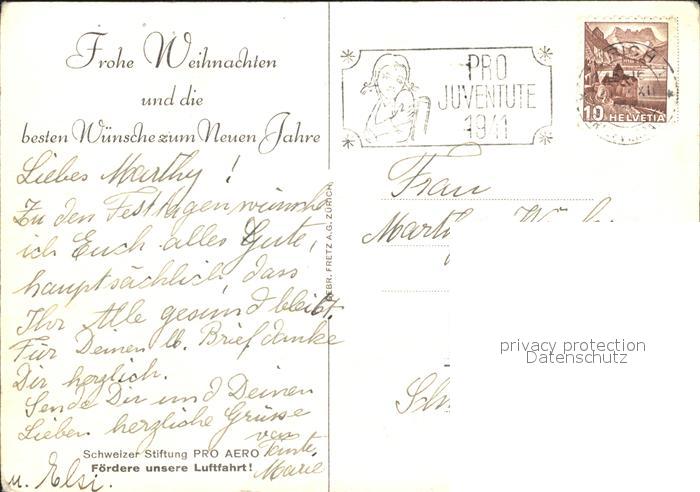 Frohe Weihnachten
und die
besten Wünsche zum Neuen Jahre
Liebes Marthy!
Zu den Festtagen wünsche
ich Euch alles Gute,
hauptsächlich, dass
Ihr Alle gesund bleibt.
Für Deinen lb. Brief danke
Dir herzlich.
Sende Dir und Deinen
Lieben herzliche Grüsse
von Tante
Marie
u. Elsi.
Schweizer Stiftung PRO AERO
Fördere unsere Luftfahrt!
GEBR. FRETZ A.G. ZÜRICH
PRO
JUVENTUTE
1941
10 HELVETIA
Frau
privacy protection
Datenschutz